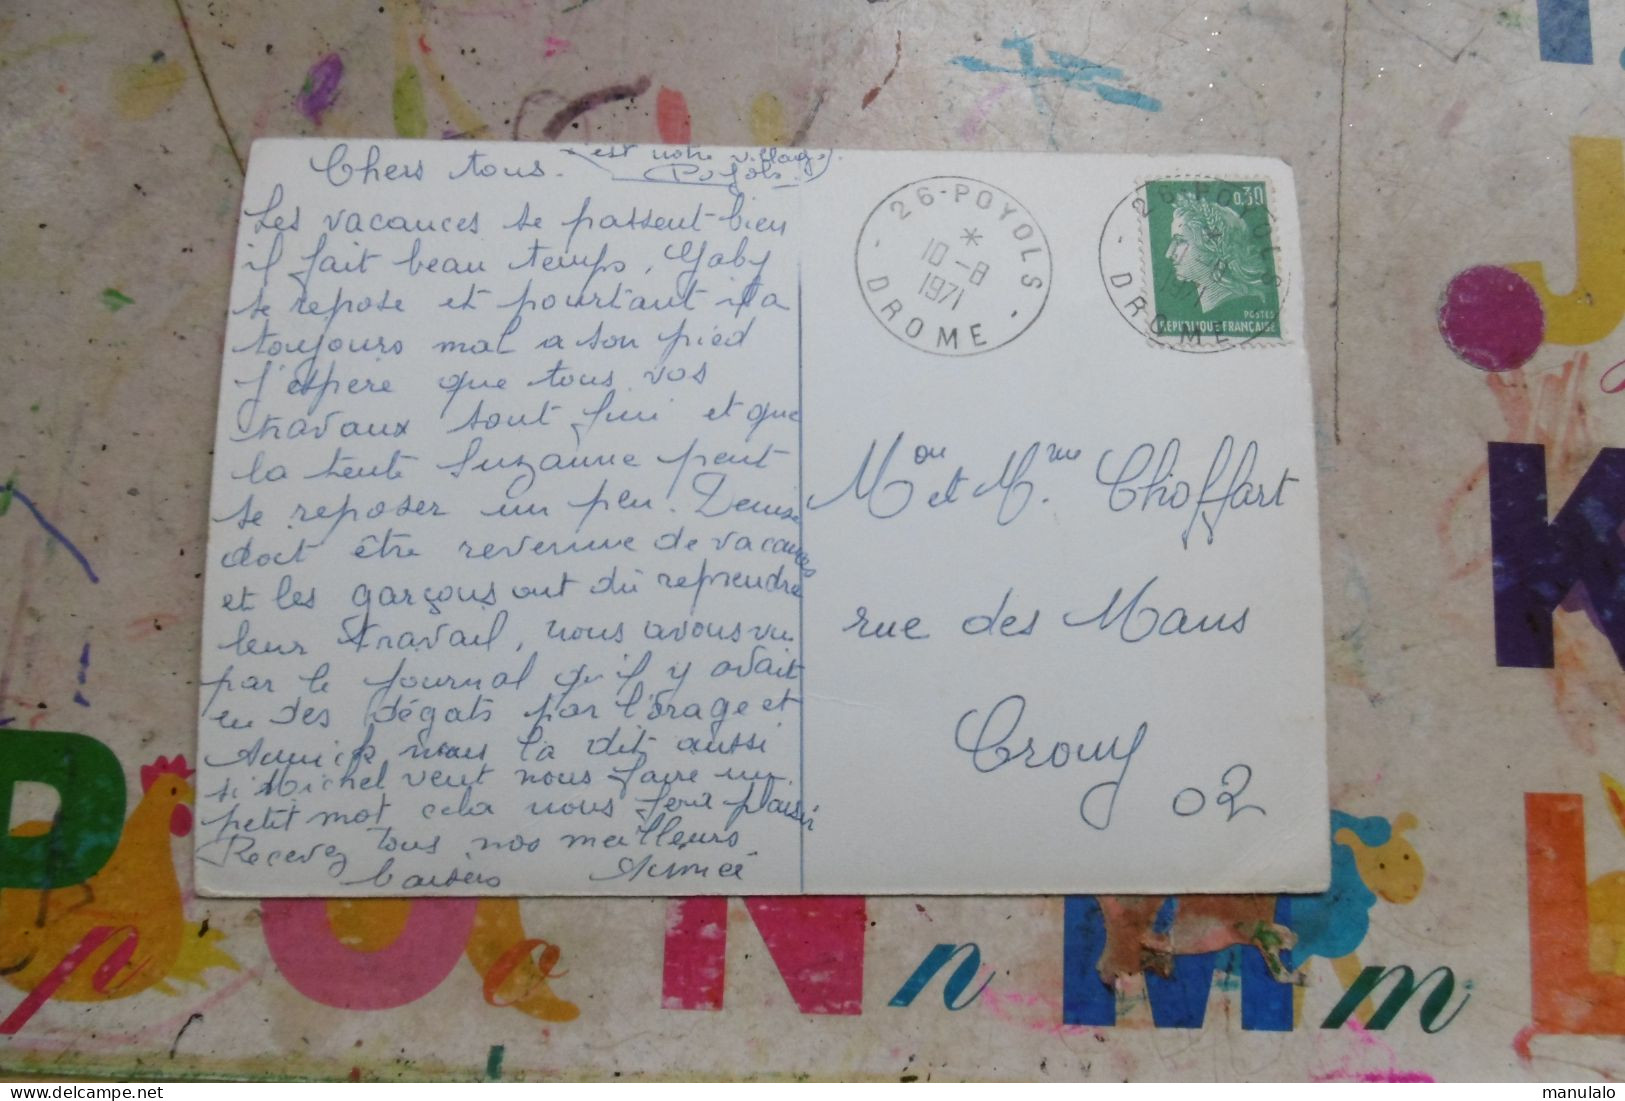 Chers tous.
c'est notre village
Poyols.
Les vacances se passent bien
il fait beau temps, Gaby
se repose et pourtant il a
toujours mal a son pied
J'espere que tous vos
travaux sont fini et que
la tente Suzanne peut
se reposer un peu. Denise
doit être revenue de vacances
et les garçons ont dû reprendre
leur travail, nous avons vu
par le journal qu'il y avait
eu des dégats par l'orage et
Annick nous la dit aussi
si Michel veut nous faire un
petit mot cela nous fera plaisir
Recevez tous nos meilleurs
baisers Aimée
26-POYOLS
10-8
1971
DROME
26-POYOLS
1971
DROME
0,30
POSTES
REPUBLIQUE FRANÇAISE
Mon et Mme. Choffart
rue des Mans
Crouy
02
J
K
P
p
o
N
n
M
m
L
manulalo